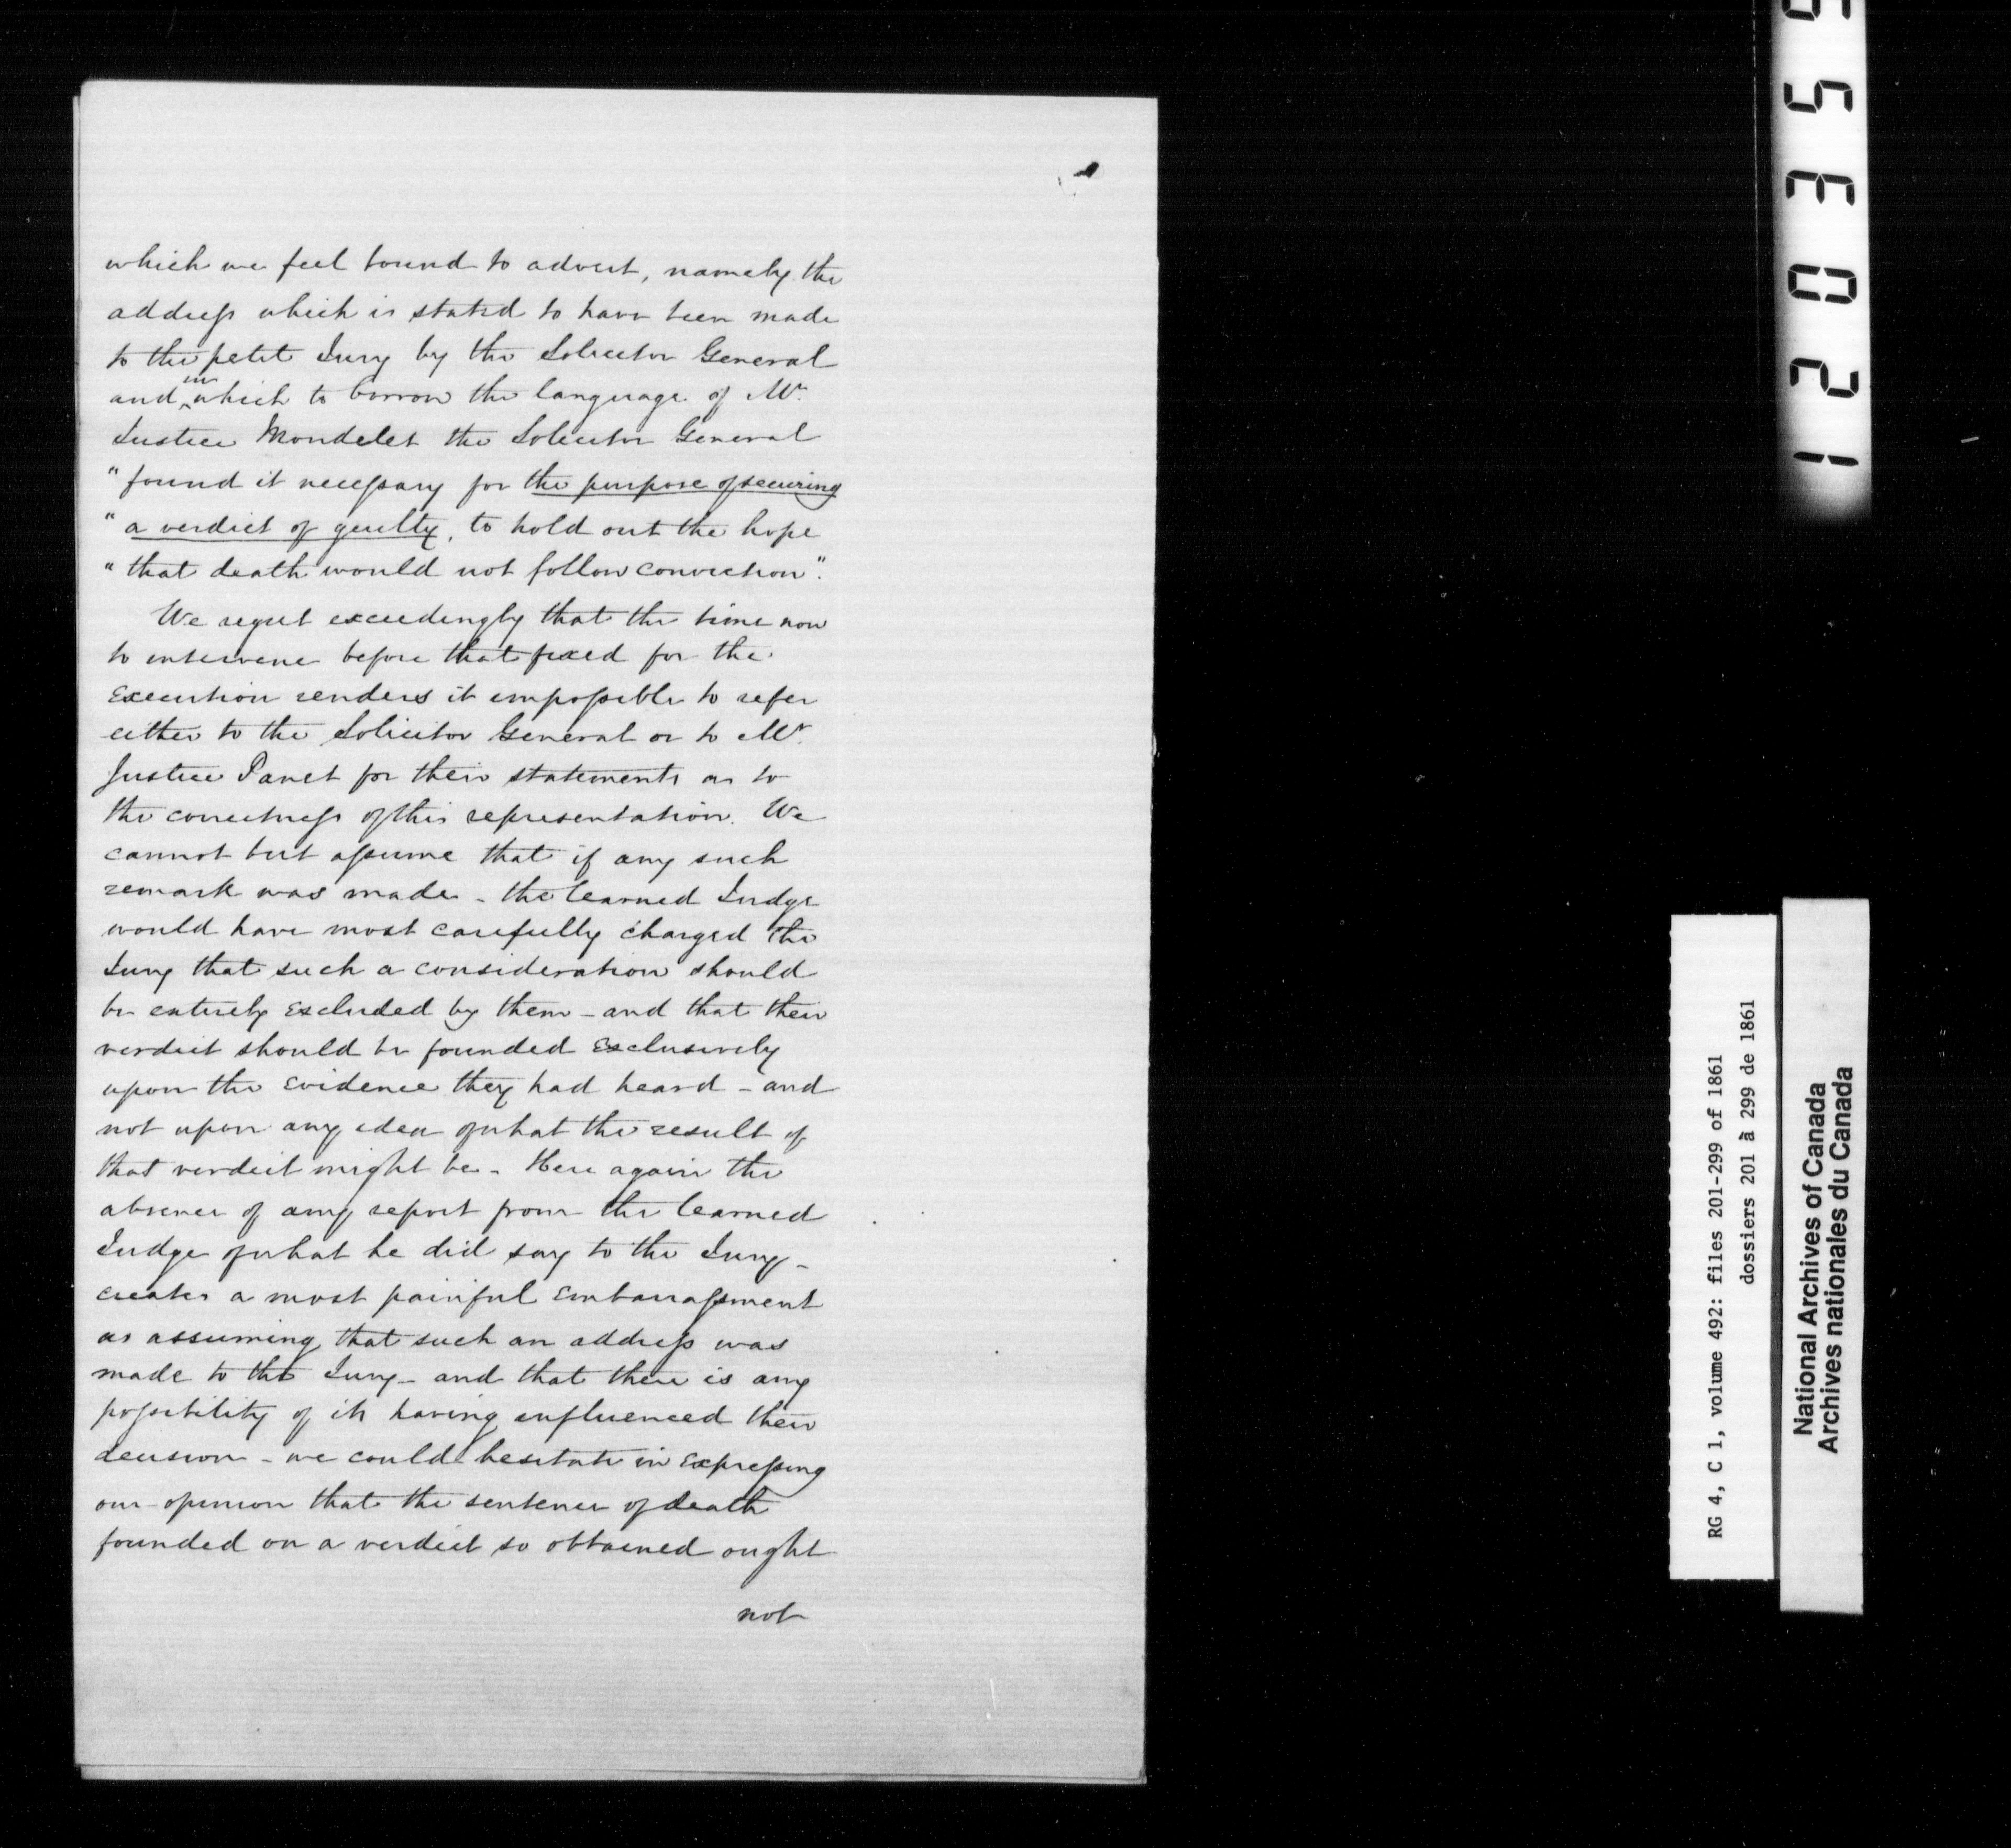 which we feel bound to advert, namely the
address which is stated to have been made
to the petit Jury by the Solicitor General
and in which to borrow the language of Mr.
Justice Mondelet the Solicitor General
"found it necessary for the purpose of securing
"a verdict of guilty, to hold out the hope
"that death would not follow conviction".
We regret exceedingly that the time now
to intervene before that fixed for the
Execution renders it impossible to refer
either to the Solicitor General or to Mr.
Justice Panet for their statements as to
the correctness of this representation. We
cannot but assume that if any such
remark was made - the learned Judge
would have most carefully charged the
Jury that such a consideration should
be entirely excluded by them - and that their
verdict should be founded exclusively
upon the evidence they had heard - and
not upon any idea of what the result of
that verdict might be - Here again the
absence of any report from the learned
Judge of what he did say to the Jury -
creates a most painful embarrassment
as assuming that such an address was
made to the Jury - and that there is any
possibility of its having influenced their
decision - we could hesitate in expressing
our opinion that the sentence of death
founded on a verdict so obtained ought
not
5 5 3 0 2 1
RG 4, C 1, volume 492: files 201-299 of 1861
dossiers 201 à 299 de 1861
National Archives of Canada
Archives nationales du Canada